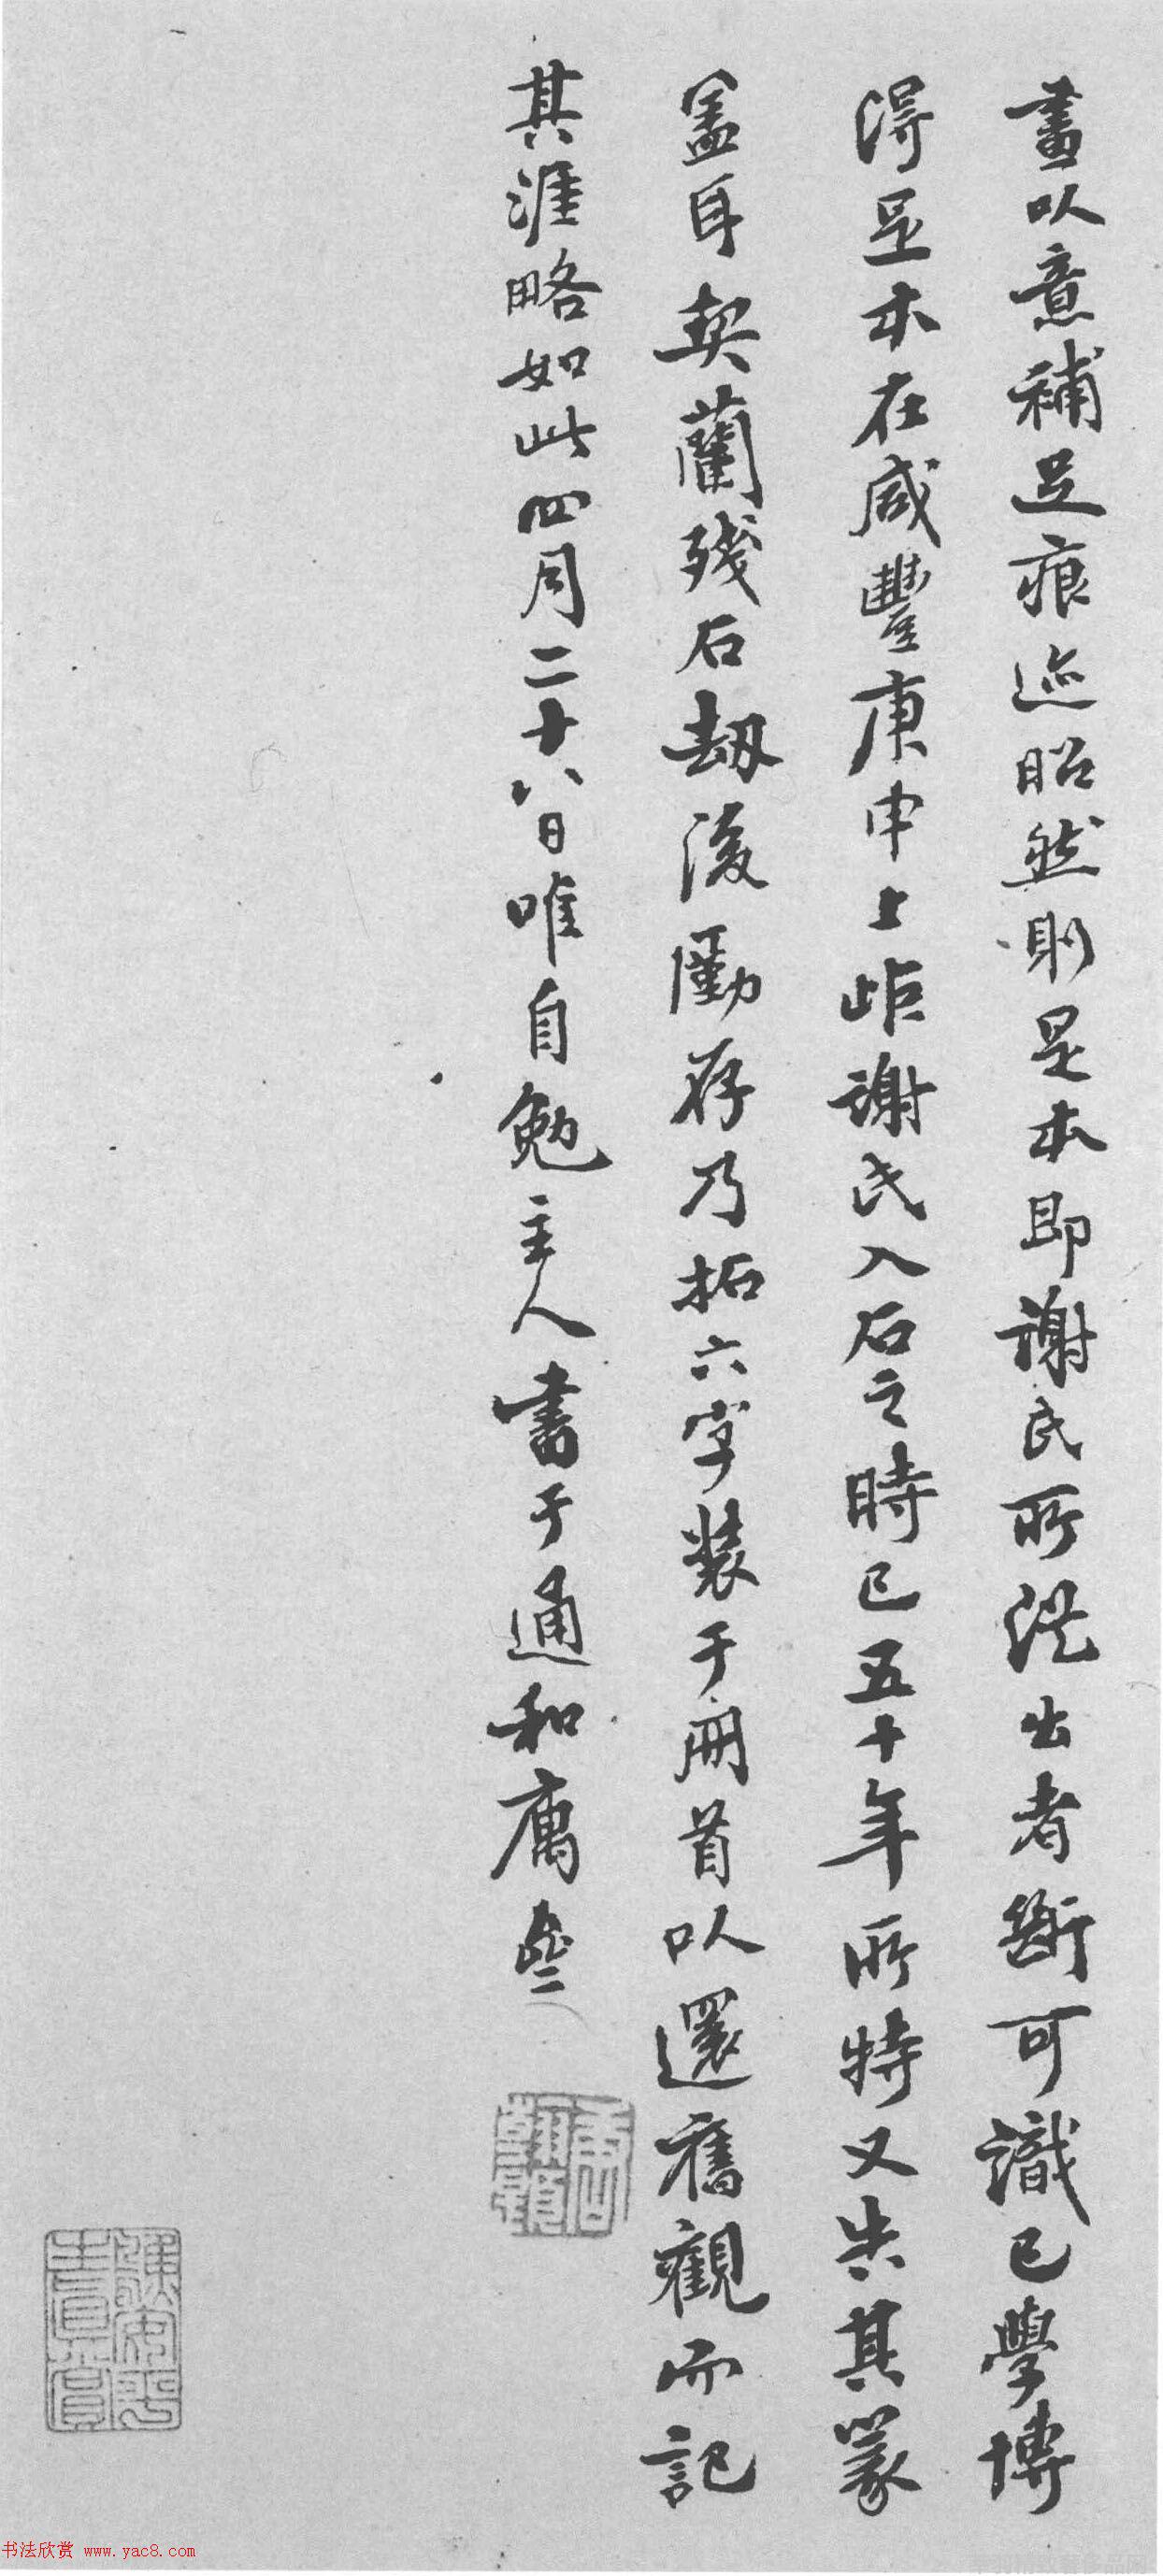 畫以意補足痕迹昭然則是本即謝氏所從出者斷可識已學博
得足本在咸豐庚申上距謝氏入石之時已五十年所特又失其篆
蓋耳契蘭殘石劫後勵存乃拓六字裝于冊首以還舊觀而記
其涯略如此四月二十八日唯自勉主人書于通和廡
书法欣赏 www.yac8.com